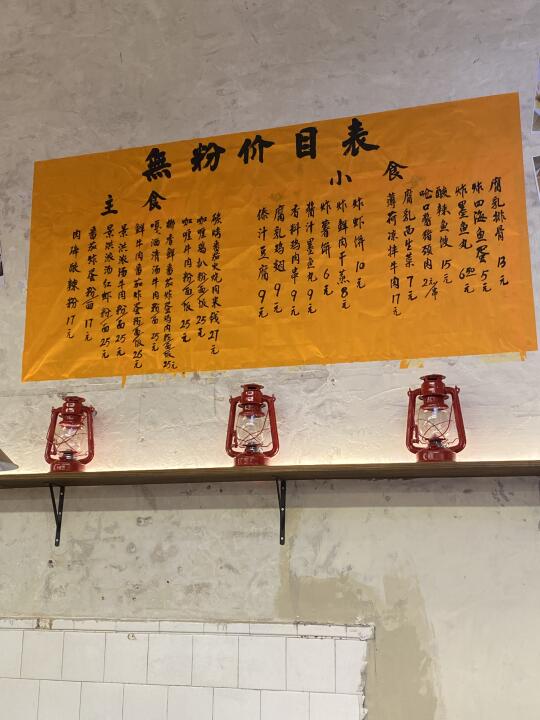 無粉价目表
主食
小食
肉碎酸辣粉 17元
番茄炸蛋粉面 17元
景洪派汤红虾粉面 25元
景洪派汤牛肉粉面 25元
鲜牛肉番茄炸蛋粉面饭 25元
嘎洒清汤牛肉粉面 25元
咖喱牛肉粉面饭 25元
咖喱鸡扒粉面饭 25元
碳烤番茄火烧肉米线 27元
傣汁豆腐 9元
腐乳鸡翅 9元
香料鸡肉串 9元
酱汁墨鱼丸 9元
炸薯饼 6元
炸鲜肉干蒸 8元
炸虾饼 10元
薄荷凉拌牛肉 17元
腐乳西生菜 7元
哈口酱猪颈肉 2元/串
酸辣鱼皮 15元
炸墨鱼丸 6元
炸四海鱼蛋 5元
腐乳排骨 13元